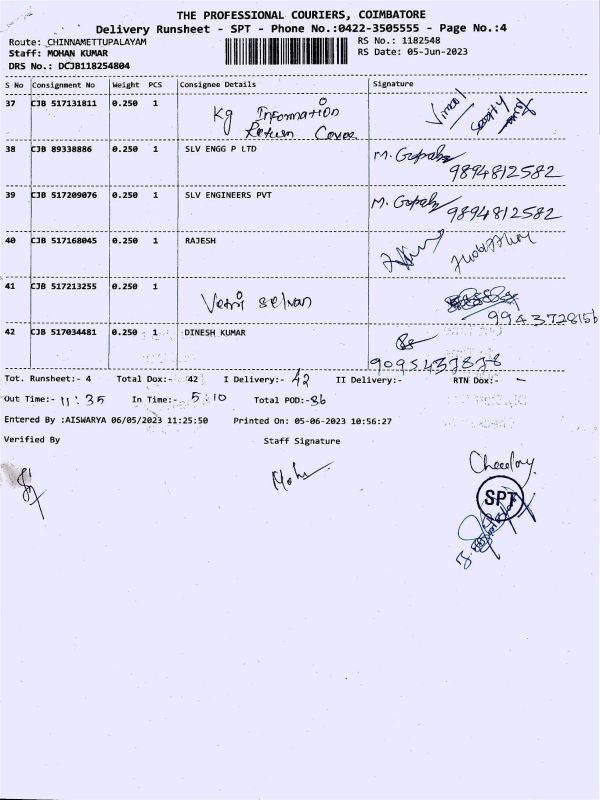 THE PROFESSIONAL COURIERS, COIMBATORE
Delivery Runsheet - SPT - Phone No.:0422-3505555 - Page No.:4
Route: CHINNAMETTUPALAYAM
RS No.: 1182548
Staff: MOHAN KUMAR
RS Date: 05-Jun-2023
DRS No.: DCJB118254804
S No Consignment No/ Weight PCS Consignee Details Signature
37 CJB 517131811 0.250 1 Kg Information
Return Cover
Vimal Security
38 CJB 89338886 0.250 1 SLV ENGG P LTD M. Gopal
9894812582
39 CJB 517209076 0.250 1 SLV ENGINEERS PVT M. Gopal
9894812582
40 CJB 517168045 0.250 1 RAJESH
41 CJB 517213255 0.250 1
Vetri selvan
9943728156
42 CJB 517034481 0.250 1 DINESH KUMAR
Tot. Runsheet:- 4 Total Dox:- 42 I Delivery:- 42 II Delivery:- RTN Dox:- -
Out Time:- 11:35 In Time:- 5:10 Total POD:-36
Entered By :AISWARYA 06/05/2023 11:25:50 Printed On: 05-06-2023 10:56:27
Verified By Staff Signature
SPT